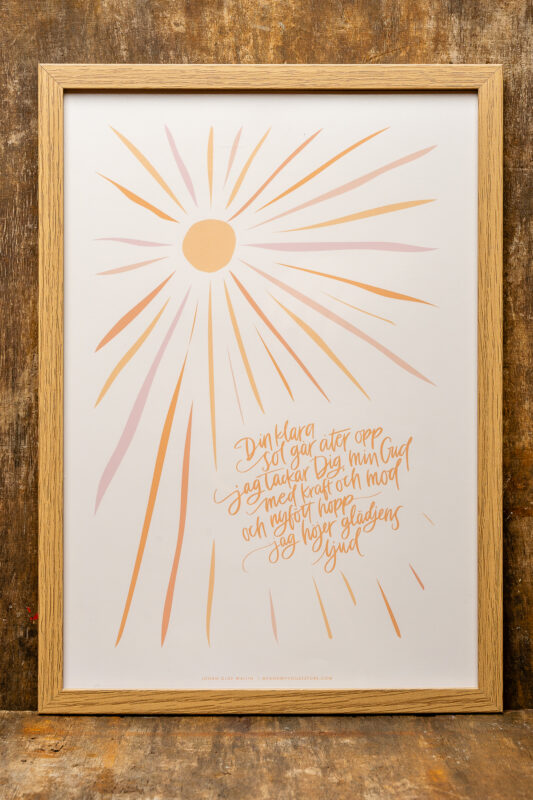 Din klara
sol går åter opp
jag tackar Dig, min Gud
med kraft och mod
och nyfött hopp
jag höjer glädjens
ljud
JOHAN OLOF WALLIN